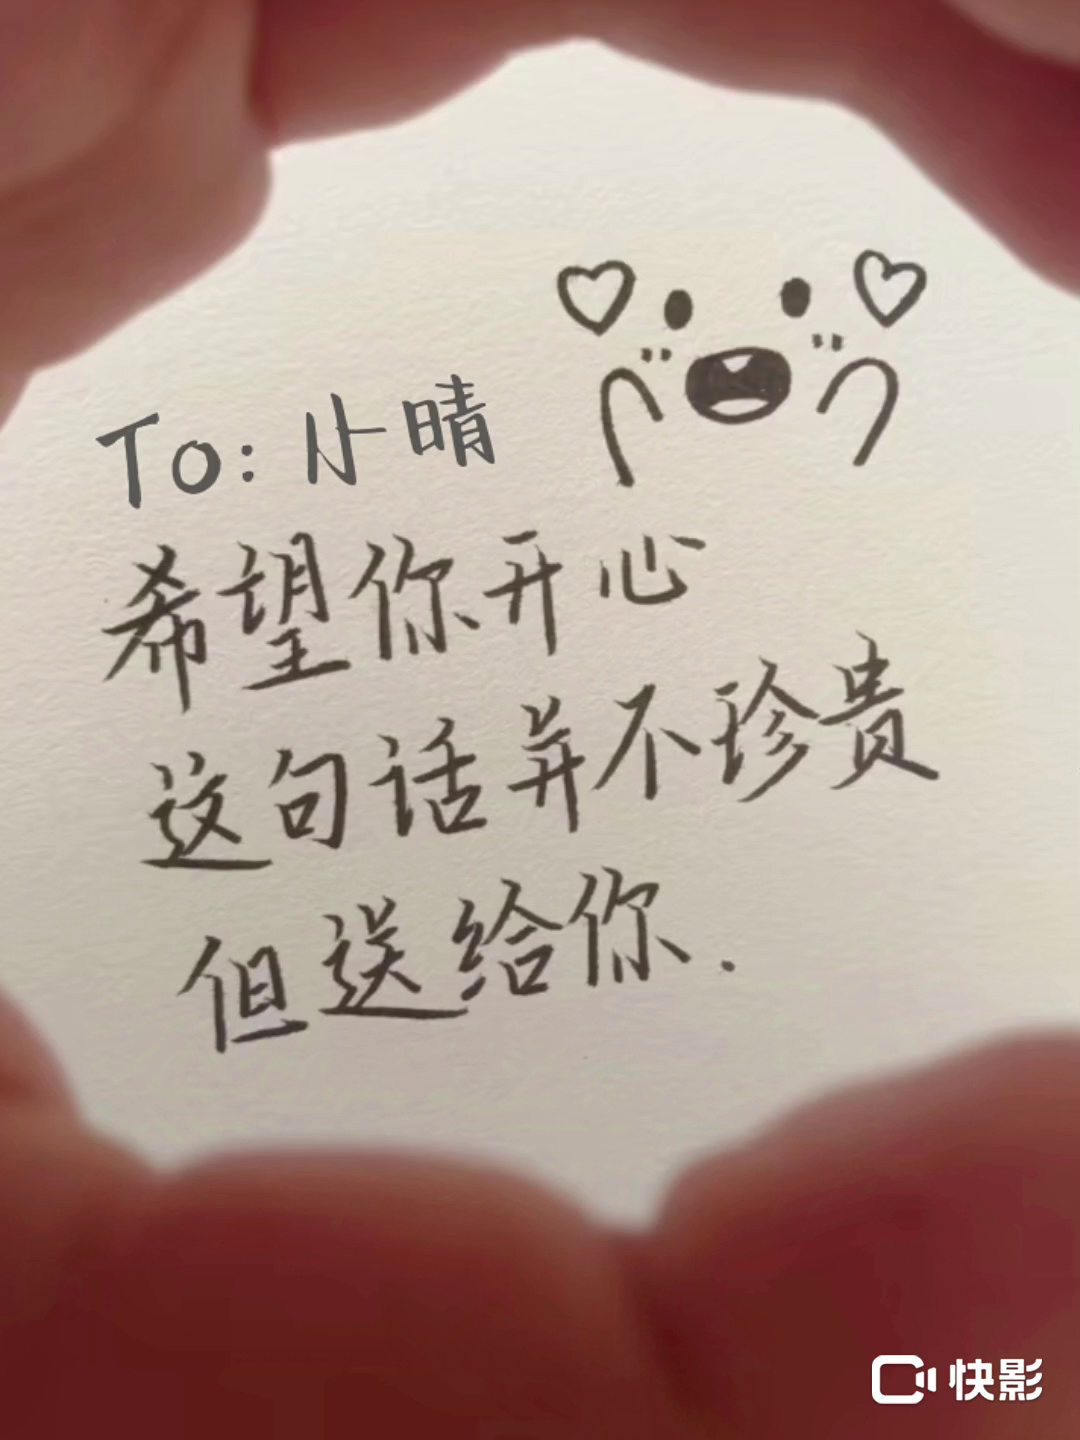 To: 小晴
希望你开心
这句话并不珍贵
但送给你.
快影